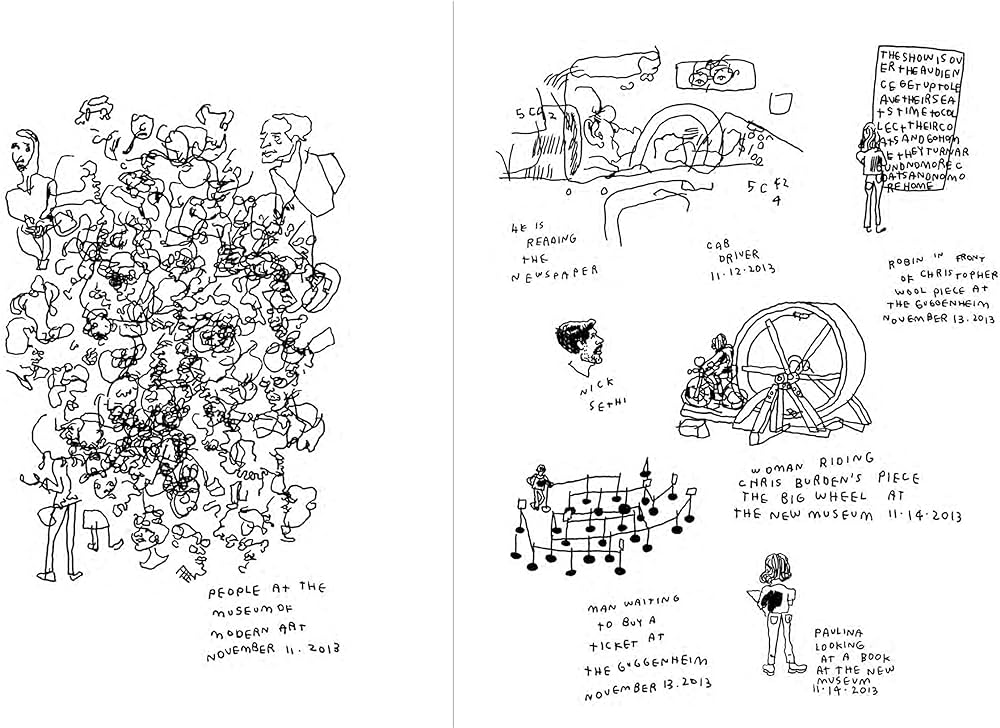 PEOPLE AT THE
MUSEUM OF
MODERN ART
NOVEMBER 11. 2013
5C42
5C42
4
HE IS
READING
THE
NEWSPAPER
CAB
DRIVER
11.12.2013
THE SHOW IS OV
ER THE AUDIEN
CE GET UP TO LE
AVE THEIR SEA
TS TIME TO COL
LECT THEIR CO
ATS AND GO HOM
E THEY TURN AR
OUND NO MORE C
OATS AND NO MO
RE HOME
ROBIN IN FRONT
OF CHRISTOPHER
WOOL PIECE AT
THE GUGGENHEIM
NOVEMBER 13.2013
NICK
SETHI
WOMAN RIDING
CHRIS BURDEN'S PIECE
THE BIG WHEEL AT
THE NEW MUSEUM 11.14.2013
MAN WAITING
TO BUY A
TICKET AT
THE GUGGENHEIM
NOVEMBER 13.2013
PAULINA
LOOKING
AT A BOOK
AT THE NEW
MUSEUM
11.14.2013